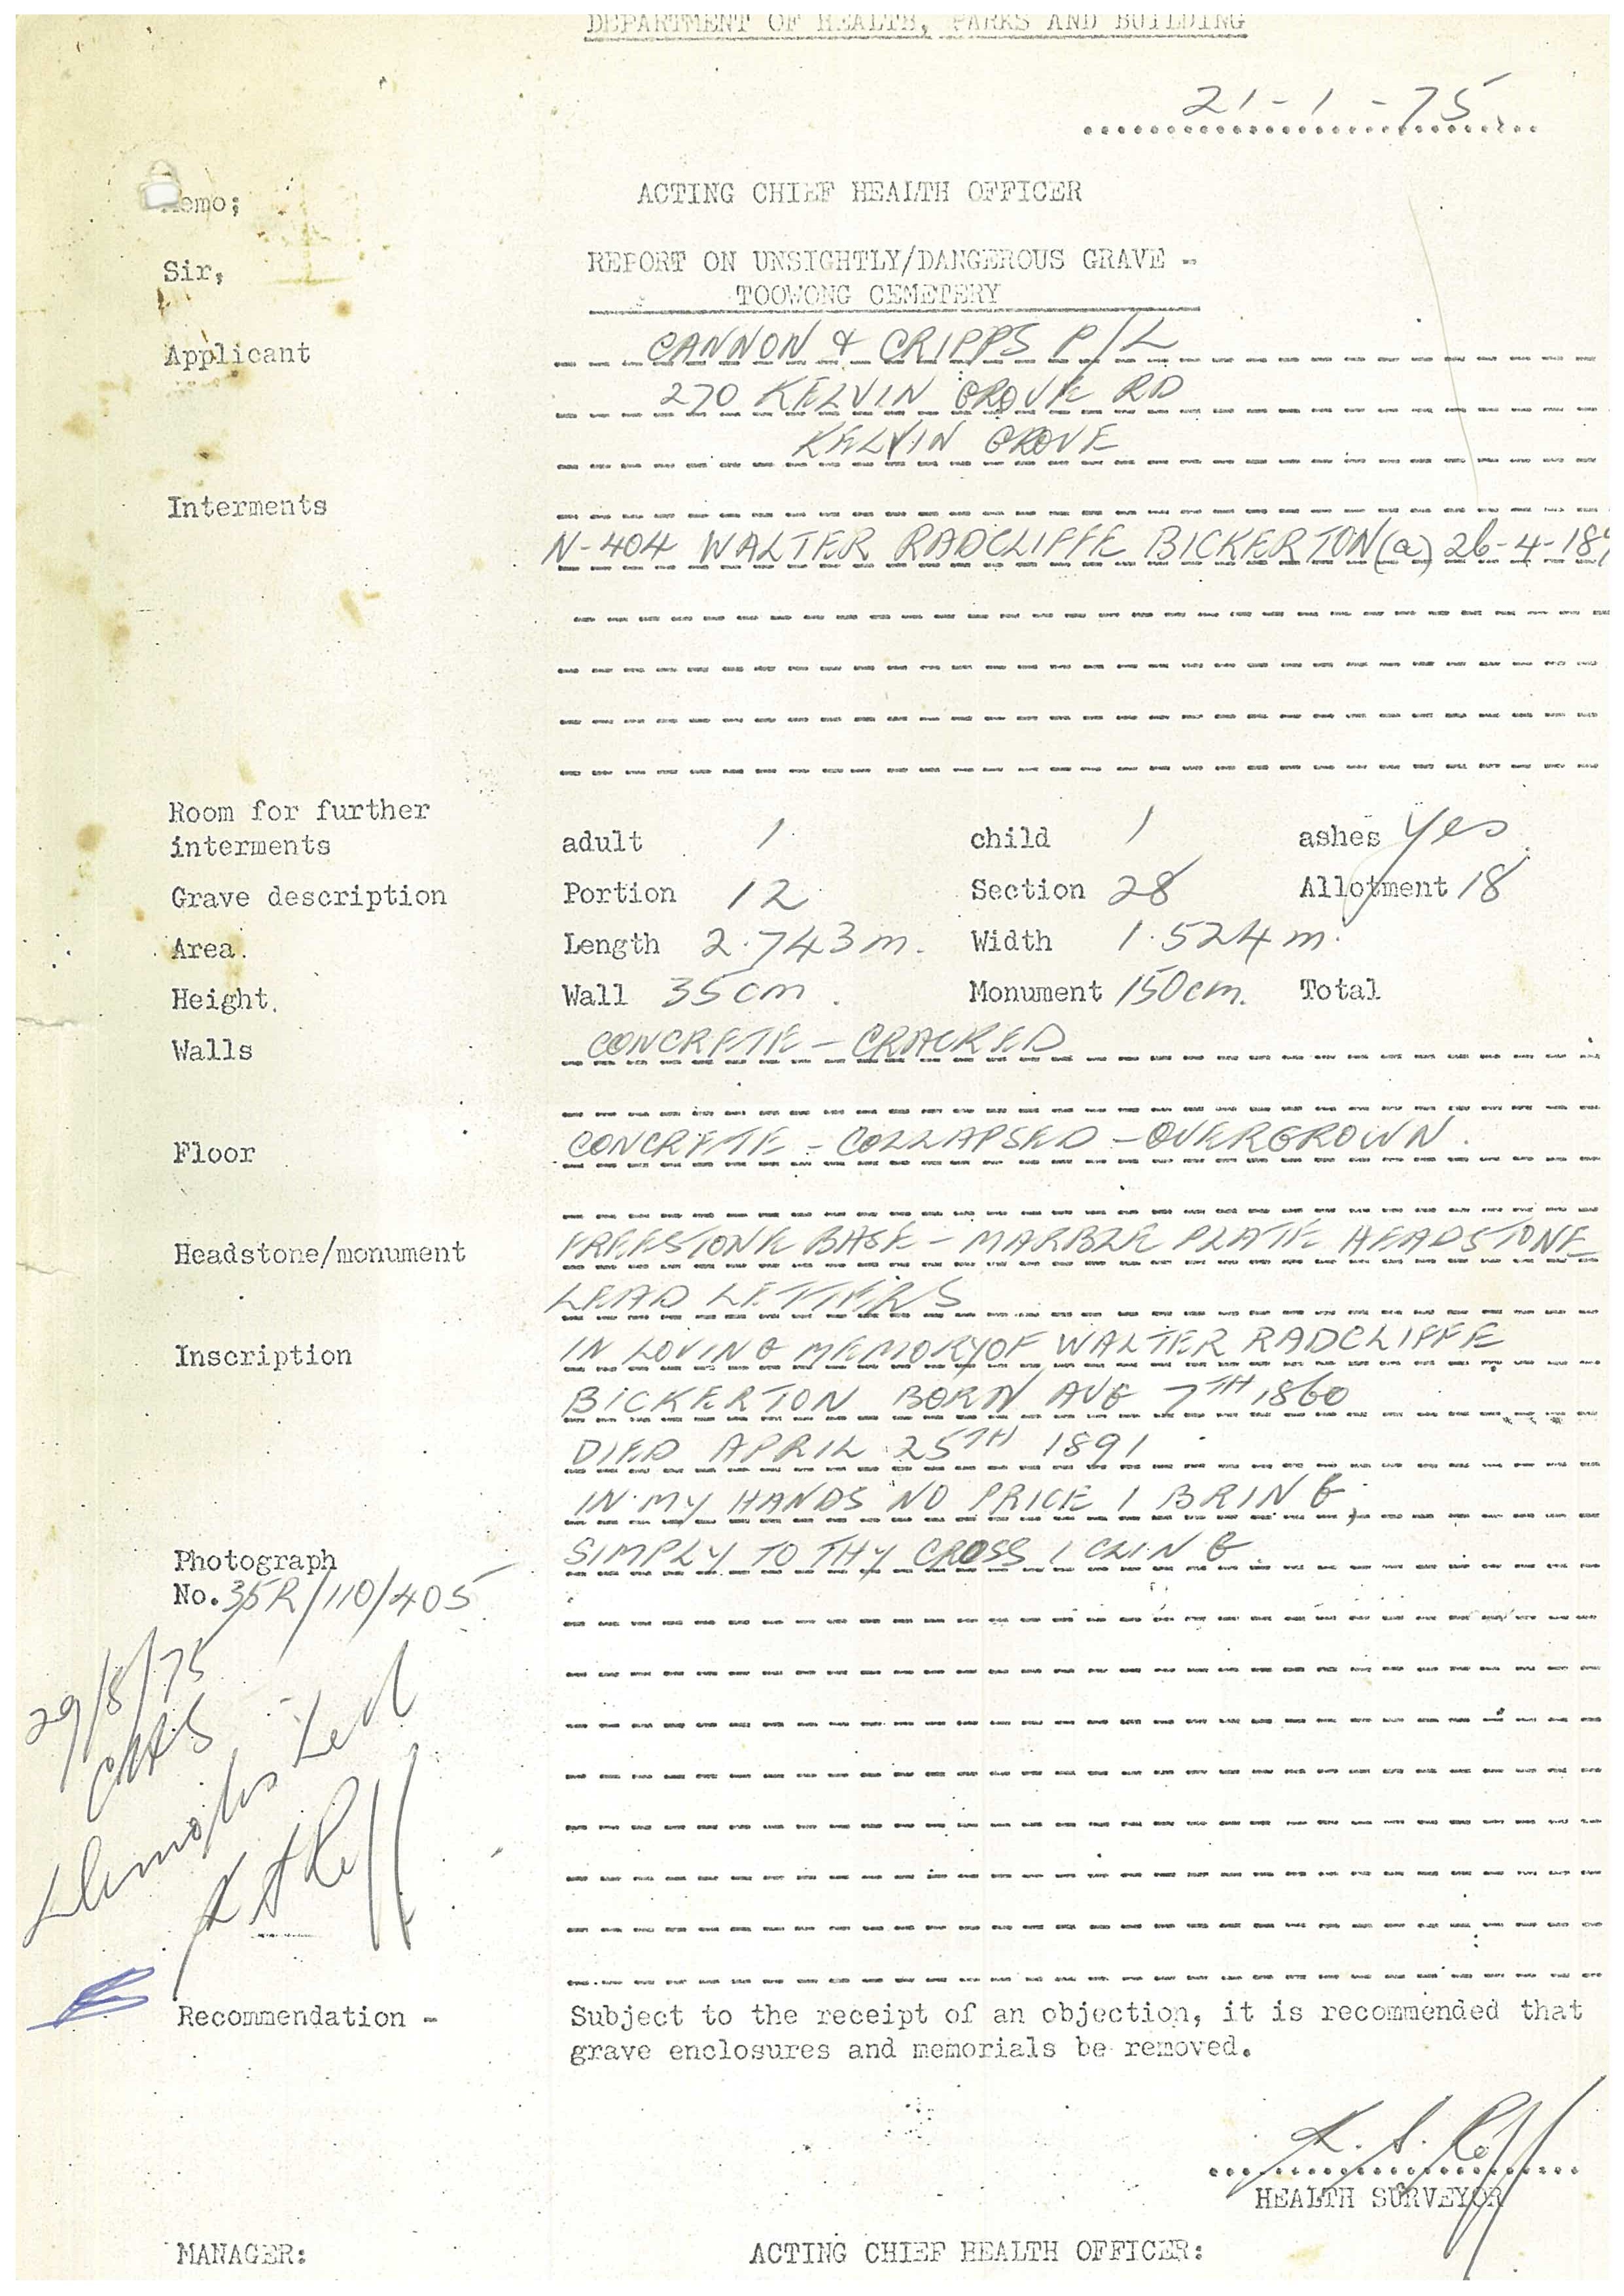 DEPARTMENT OF HEALTH, PARKS AND BUILDING
21-1-75
Memo;
ACTING CHIEF HEALTH OFFICER
Sir,
REPORT ON UNSIGHTLY/DANGEROUS GRAVE -
TOOWONG CEMETERY
Applicant CANNON & CRIPPS P/L
270 KELVIN GROVE RD
KELVIN GROVE
Interments
N-404 WALTER RADCLIFFE BICKERTON (a) 26-4-189
Room for further
interments adult 1 child 1 ashes yes
Grave description Portion 12 Section 28 Allotment 18
Area. Length 2.743m. Width 1.524m.
Height. Wall 35cm. Monument 150cm. Total
Walls CONCRETE - CRACKED
Floor CONCRETE - COLLAPSED - OVERGROWN.
Headstone/monument FREESTONE BASE - MARBLE PLATE HEADSTONE
LEAD LETTERS
Inscription IN LOVING MEMORY OF WALTER RADCLIFFE
BICKERTON BORN AUG 7TH 1860
DIED APRIL 25TH 1891
IN MY HANDS NO PRICE I BRING,
Photograph SIMPLY TO THY CROSS I CLING.
No. 35R/110/405
29/8/75
Recommendation - Subject to the receipt of an objection, it is recommended that
grave enclosures and memorials be removed.
HEALTH SURVEYOR
MANAGER: ACTING CHIEF HEALTH OFFICER: